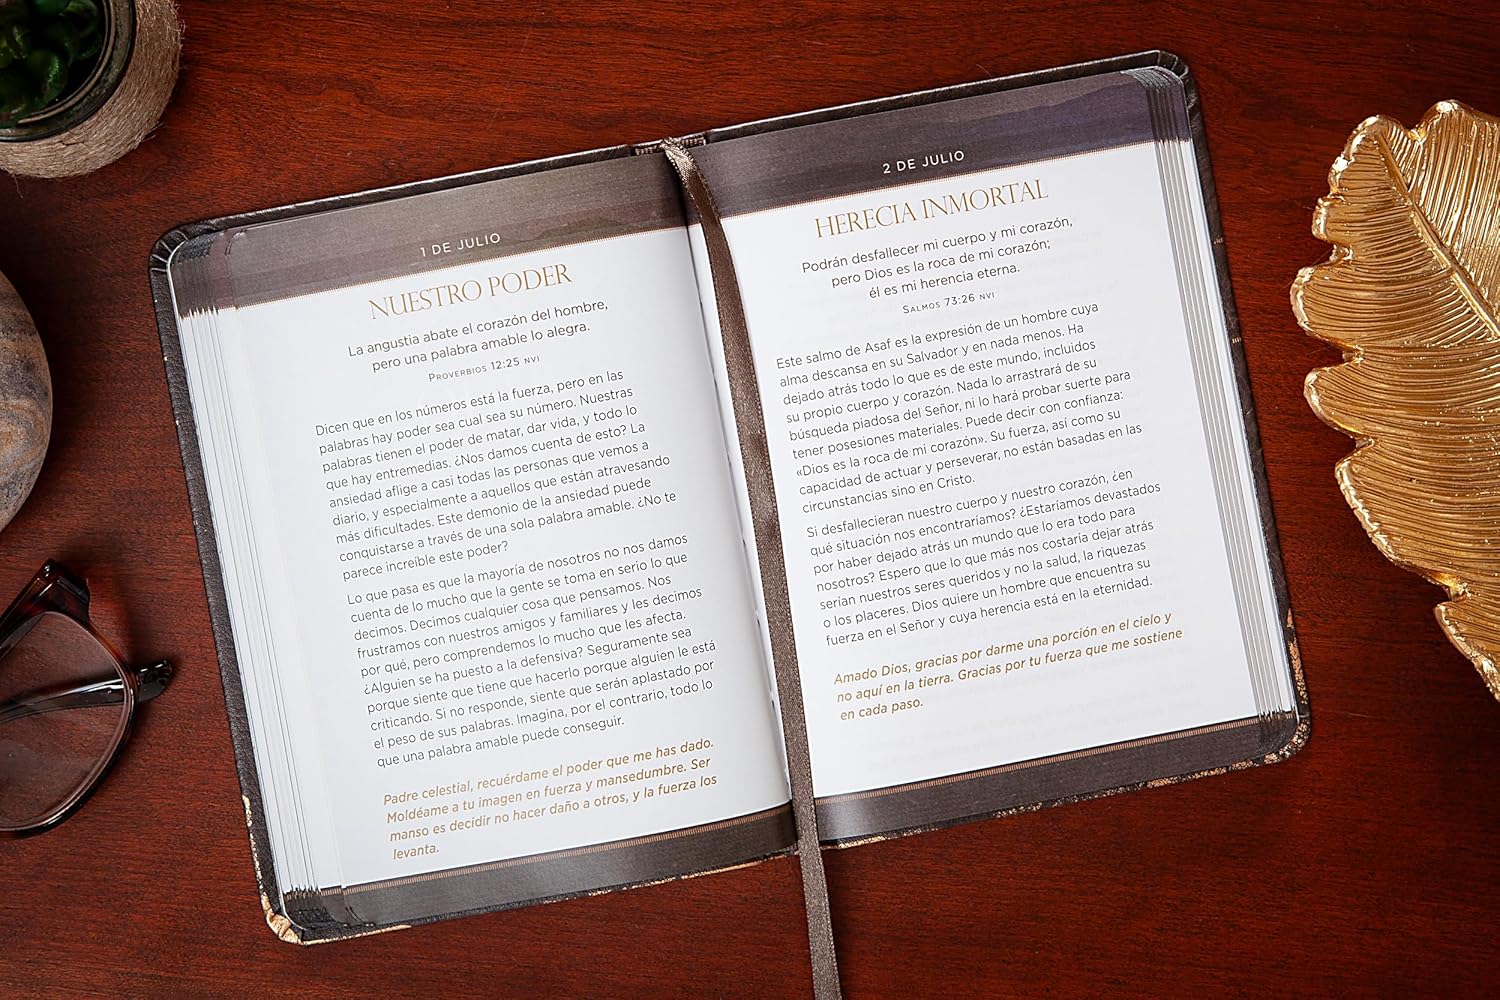 1 DE JULIO
NUESTRO PODER
La angustia abate el corazón del hombre,
pero una palabra amable lo alegra.
PROVERBIOS 12:25 NVI
Dicen que en los números está la fuerza, pero en las
palabras hay poder sea cual sea su número. Nuestras
palabras tienen el poder de matar, dar vida, y todo lo
que hay entremedias. ¿Nos damos cuenta de esto? La
ansiedad aflige a casi todas las personas que vemos a
diario, y especialmente a aquellos que están atravesando
más dificultades. Este demonio de la ansiedad puede
conquistarse a través de una sola palabra amable. ¿No te
parece increíble este poder?
Lo que pasa es que la mayoría de nosotros no nos damos
cuenta de lo mucho que la gente se toma en serio lo que
decimos. Decimos cualquier cosa que pensamos. Nos
frustramos con nuestros amigos y familiares y les decimos
por qué, pero comprendemos lo mucho que les afecta.
¿Alguien se ha puesto a la defensiva? Seguramente sea
porque siente que tiene que hacerlo porque alguien le está
criticando. Si no responde, siente que serán aplastado por
el peso de sus palabras. Imagina, por el contrario, todo lo
que una palabra amable puede conseguir.
Padre celestial, recuérdame el poder que me has dado.
Moldéame a tu imagen en fuerza y mansedumbre. Ser
manso es decidir no hacer daño a otros, y la fuerza los
levanta.
2 DE JULIO
HERECIA INMORTAL
Podrán desfallecer mi cuerpo y mi corazón,
pero Dios es la roca de mi corazón;
él es mi herencia eterna.
SALMOS 73:26 NVI
Este salmo de Asaf es la expresión de un hombre cuya
alma descansa en su Salvador y en nada menos. Ha
dejado atrás todo lo que es de este mundo, incluidos
su propio cuerpo y corazón. Nada lo arrastrará de su
búsqueda piadosa del Señor, ni lo hará probar suerte para
tener posesiones materiales. Puede decir con confianza:
«Dios es la roca de mi corazón». Su fuerza, así como su
capacidad de actuar y perseverar, no están basadas en las
circunstancias sino en Cristo.
Si desfallecieran nuestro cuerpo y nuestro corazón, ¿en
qué situación nos encontraríamos? ¿Estaríamos devastados
por haber dejado atrás un mundo que lo era todo para
nosotros? Espero que lo que más nos costaría dejar atrás
serían nuestros seres queridos y no la salud, la riquezas
o los placeres. Dios quiere un hombre que encuentra su
fuerza en el Señor y cuya herencia está en la eternidad.
Amado Dios, gracias por darme una porción en el cielo y
no aquí en la tierra. Gracias por tu fuerza que me sostiene
en cada paso.